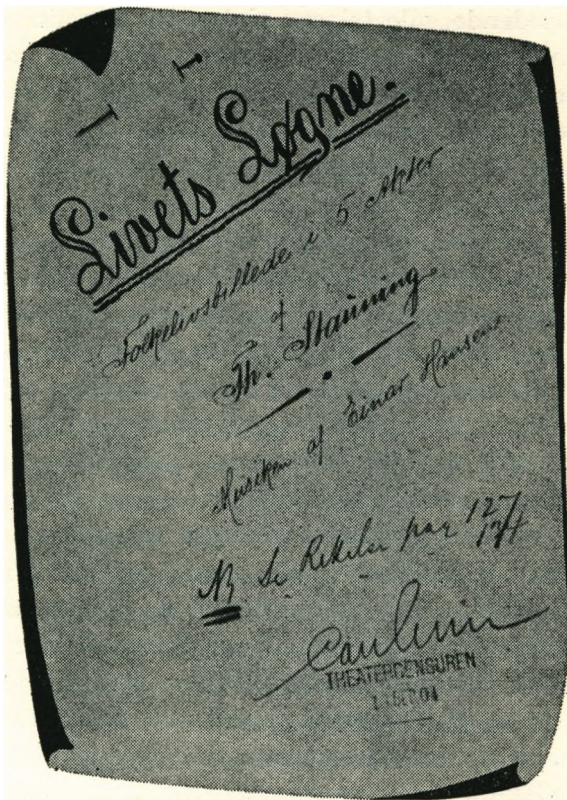 Livets Løgne.
Folkelivsbillede i 5 Akter
af
Th. Stauning
Musiken af Einar Hansen
NB Se pag 127
134
THEATERCENSUREN